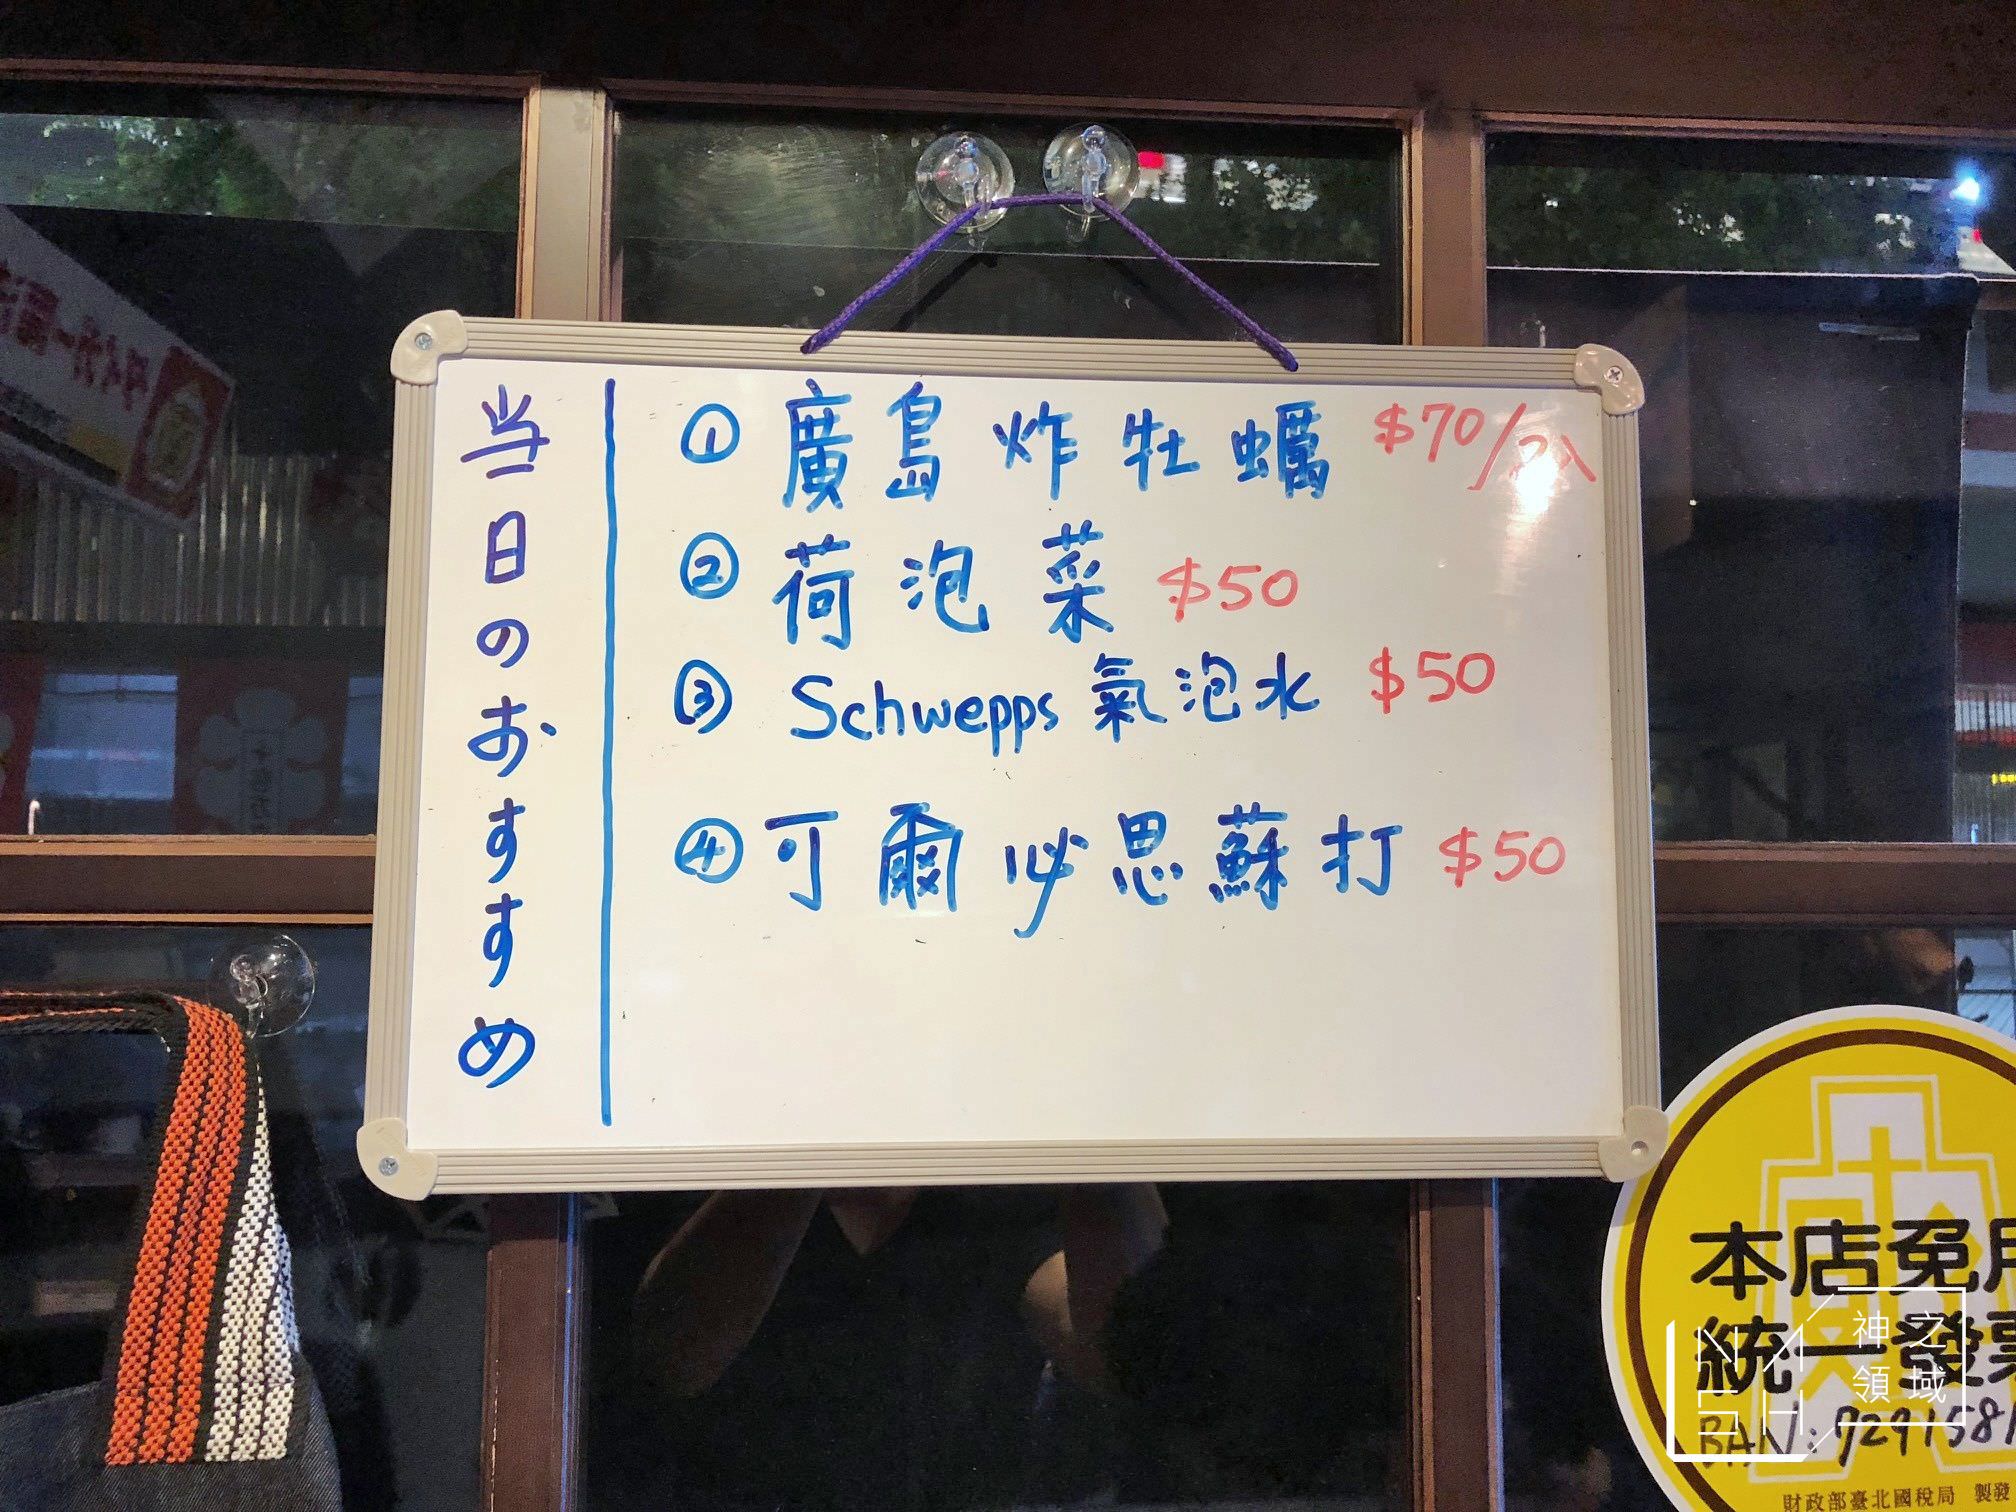 当日のおすすめ
① 廣島炸牡蠣 $70/2入
② 荷泡菜 $50
③ Schwepps 氣泡水 $50
④ 可爾必思蘇打 $50
本店免用
統一發票
BAN:7291581
財政部臺北國稅局 製發
神之領域